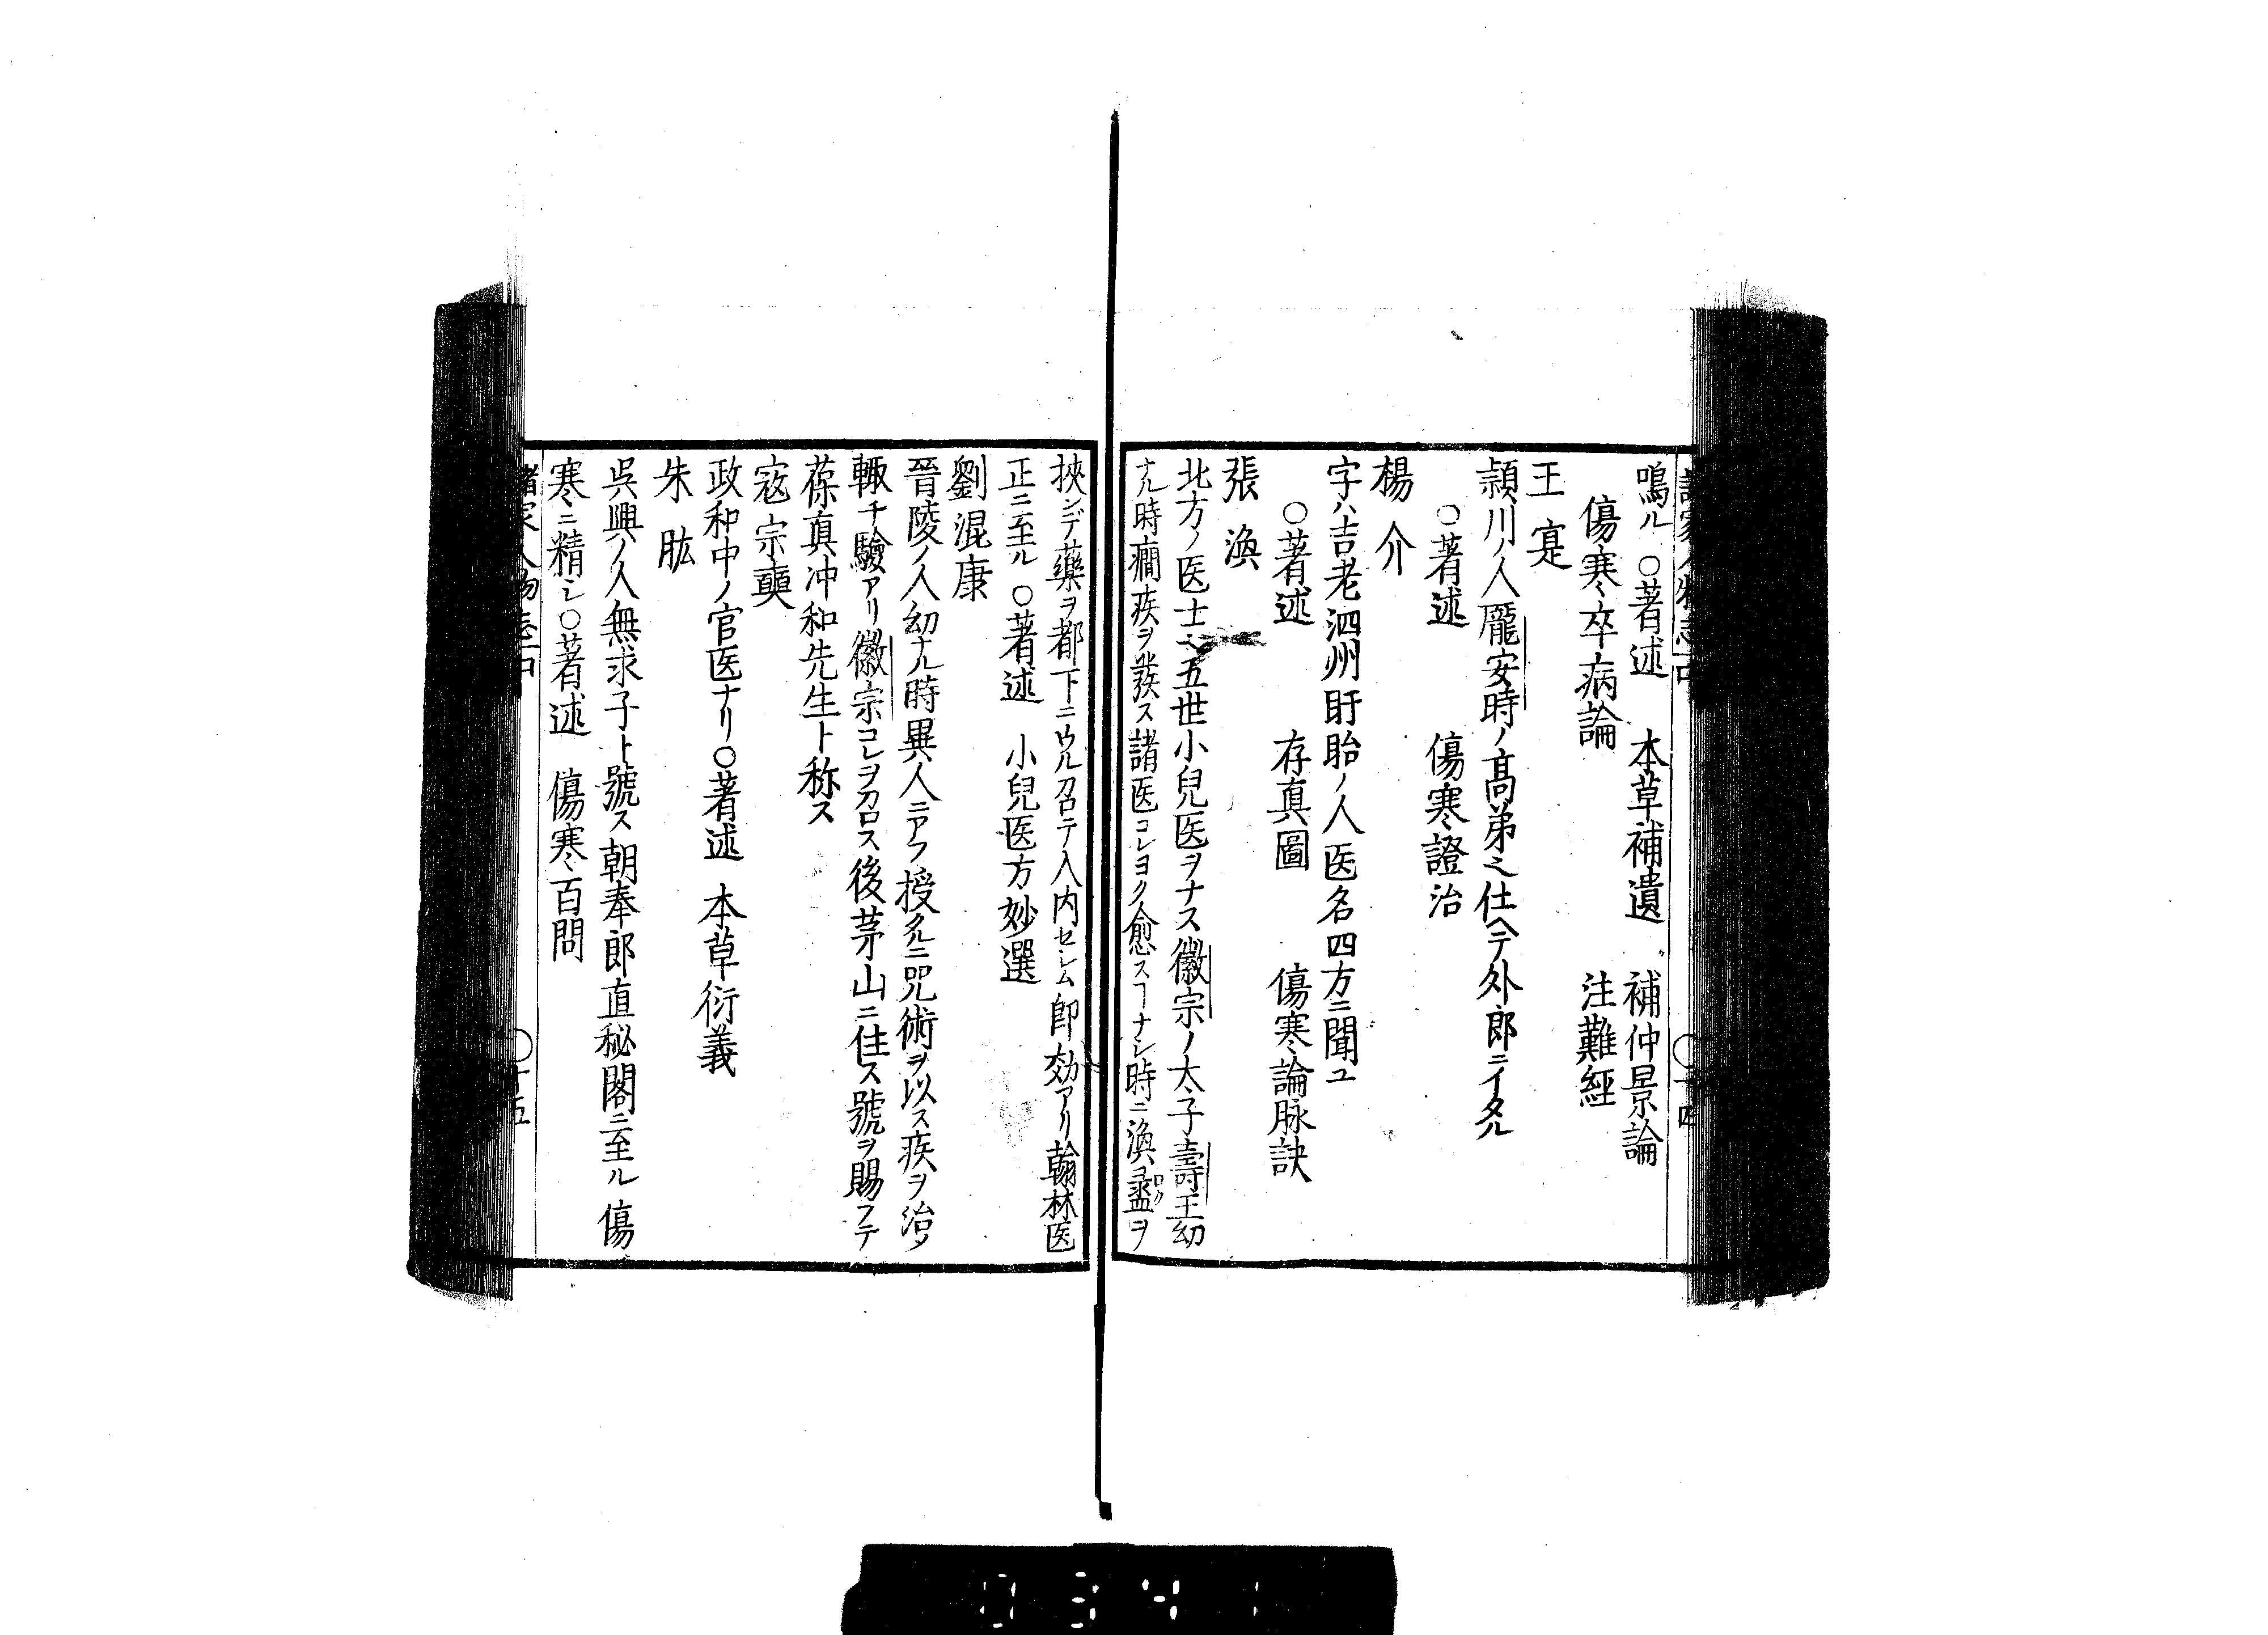 鳴ル　○著述　本草補遺　補仲景論
傷寒卒病論　注難經
王寔
頴川ノ人龐安時ノ高弟之仕ヘテ外郎ニイタル
○著述　傷寒證治
楊介
字ハ吉老泗州盱眙ノ人医名四方ニ聞ユ
○著述　存真圖　傷寒論脉訣
張渙
北方ノ医士之五世小兒医ヲナス徽宗ノ太子壽王幼
ナル時癇疾ヲ發ス諸医コレヨク愈スヿナシ時ニ渙盝ヲ
挾ンデ藥ヲ都下ニウル召テ入内セシム即効アリ翰林医
正ニ至ル　○著述　小兒医方妙選
劉混康
晉陵ノ人幼ナル時異人ニアフ授クルニ咒術ヲ以ス疾ヲ治ノ
輙チ驗アリ徽宗コレヲ召ス後茅山ニ住ス號ヲ賜フテ
葆真冲和先生ト称ス
寇宗奭
政和中ノ官医ナリ○著述　本草衍義
朱肱
呉興ノ人無求子ト號ス朝奉郎直秘閣ニ至ル傷
寒ニ精シ○著述　傷寒百問
諸家人物志
○十五
0341